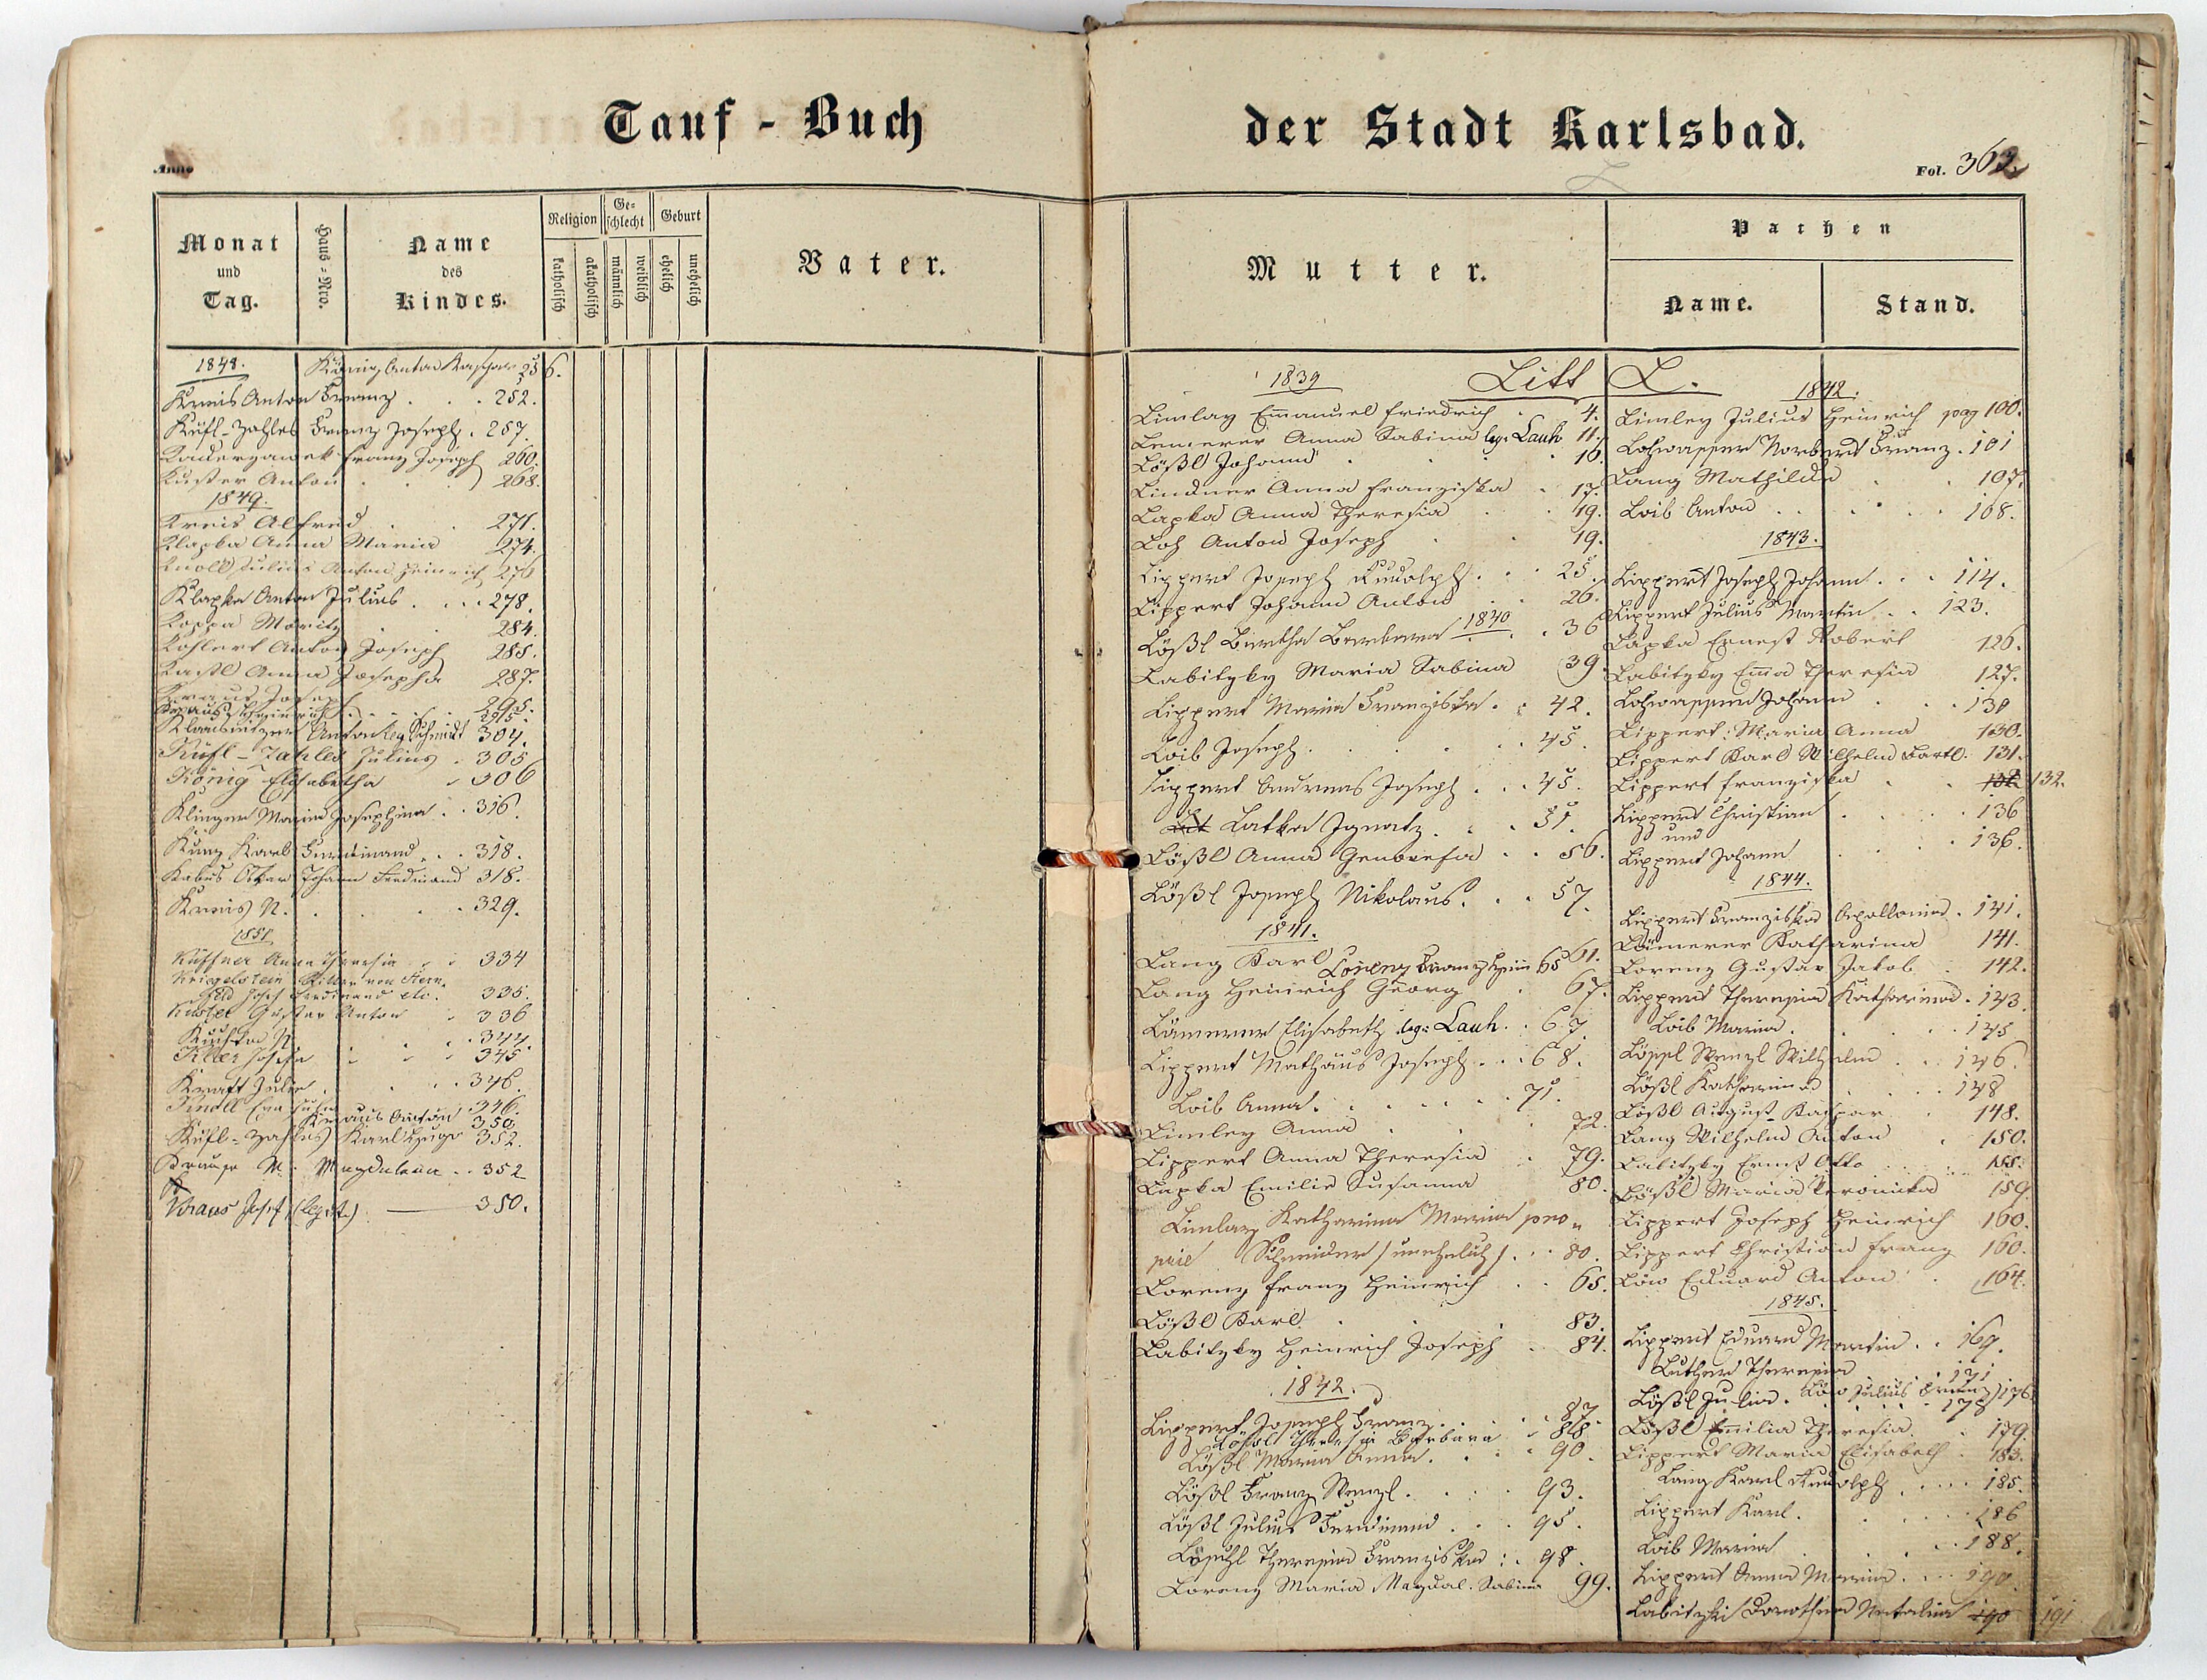 Tauf - Buch
der Stadt Karlsbad.
Anno
Fol. 362.
Monat und Tag.
Haus-Nro.
Name des Kindes.
Religion
katholisch
akatholisch
Ge-schlecht
männlich
weiblich
Geburt
ehelich
unehelich
Vater.
1848.
König Anton Kaspar 256.
Kreis Anton Franz . . . 252.
Küfl-Zahles Franz Joseph . 257.
Franz Joseph 260.
Kuster Anton . . 268.
1849.
Kreis Alfred . . 271.
Klapka Anna Maria 274.
Knoll Julius Anton Heinrich 276
Klapka Anton Julius . . . 278.
Koppa Moritz . . 284.
Kohlert Anton Joseph 285.
Kastl Anna Josepha 287.
Kraus Joseph 295.
Kraus Heinrich . . . . 295.
Anton leg. Schmidt 304.
Küfl-Zahles Julius . 305
König Elisabetha . 306
Klinger Maria Josephina . . 316.
Kunz Karl Ferdinand . . . 318.
Johann Ferdinand 318.
Kreis N. . . . . 329.
1851
Küffner Anna Theresia . . 334
Kriegelstein Ritter von Stern-
feld Josef Ferdinand etc. 335.
Kuster Gustav Anton . 336
N. . . . 344.
345
Kraft Julie . . . . 346.
Kindl 346.
Kraus Anton 350.
Küfl-Zahles Karl Hugo 352.
M. Magdalena . . 352
Kraus Josef, (legit.) — 350.
Mutter.
Pathen
Name.
Stand.
Litt L.
1839
Limlay Emanuel Friedrich . 4.
Lemerer Anna Sabina leg. Lauh 11.
Lößl Johann . . . 16.
Lindner Anna Franziska . 17.
Lapka Anna Theresia . . 19.
Loh Anton Joseph . . 19.
Lippert Joseph Rudolph . . . 25.
Lippert Johann Anton . . 26.
1840
Lößl Bertha Barbara . . 36
Labitzky Maria Sabina 39.
Lippert Maria Franziska . . 42.
Loib Joseph . . . . . 45.
Lippert Andreas Joseph . . . 45.
Latka Ignatz . . . 51.
Lößl Anna Genovefa . . 56.
Lößl Joseph Nikolaus . . . 57.
1841.
Lang Karl 61.
Lorenz Franz Hein 65
Lang Heinrich Georg . 67.
Lämerer Elisabeth leg. Lauh . . 67.
Lippert Mathäus Joseph . . . 68.
Loib Anna . . . . . . 71.
Limley Anna . . . 72.
Lippert Anna Theresia . 79.
Lapka Emilie Susanna 80.
Limlay Katharina Maria pro-
prie Schneider /unehelich/ . . 80.
Lorenz Franz Heinrich . . 65.
Lößl Karl . . . 83.
Labitzky Heinrich Joseph . 84.
1842.
Lippert Joseph Franz . . . 87.
Theresia Barbara . 88
Lößl Maria Anna . . . 90.
Lößl Franz Wenzl . . . . 93.
Lößl Julius Ferdinand . . . 95.
Theresia Franziska . . 98.
Lorenz Maria Magdal. Sabina 99.
1842.
Limley Julius Heinrich pag 100.
Lohwasser Norbert Franz . 101
Lang Mathilda . . 107.
Loib Anton . . . . . 108.
1843.
Lippert Joseph Johann . . . 114.
Lippert Julius Martin . . 123.
Lapka Ernest Robert 126.
Labitzky Emma Theresia 127.
Lohwasser Johann . . . 130
Lippert Maria Anna 130.
Lippert Karl Wilhelm Bartl. 131.
Lippert Franziska . . 132.
Lippert Christian . . . 136
und
Lippert Johann . . . 136.
1844.
Lippert Franziska Apollonia . 141.
Lämerer Katharina 141.
Lorenz Gustav Jakob . 142.
Lippert Theresia Katharina . 143
Loib Maria . . . . . 145
Wenzl Wilhelm . . . 146.
Lößl Katharina . . . 148
Lößl August Kaspar . . 148.
Lang Wilhelm Anton . 150.
Labitzky Ernst Otto . . . 155.
Lößl Maria Veronika 159.
Lippert Joseph Heinrich 160.
Lippert Christian Franz 160.
Löw Eduard Anton . 164.
1845.
Lippert Eduard Martin . . 169.
Theresia 171
Löw Julius Franz 176
Lößl Julia . . . . . 178
Lößl Emilia Theresia . 179.
Lippert Maria Elisabeth 183.
Lang Karl Rudolph . . . . 185.
Lippert Karl . . . . . 186
Loib Maria . . . . 188.
Lippert Anna Maria . . . 190.
Labitzki Dorothea Natalia 190 191